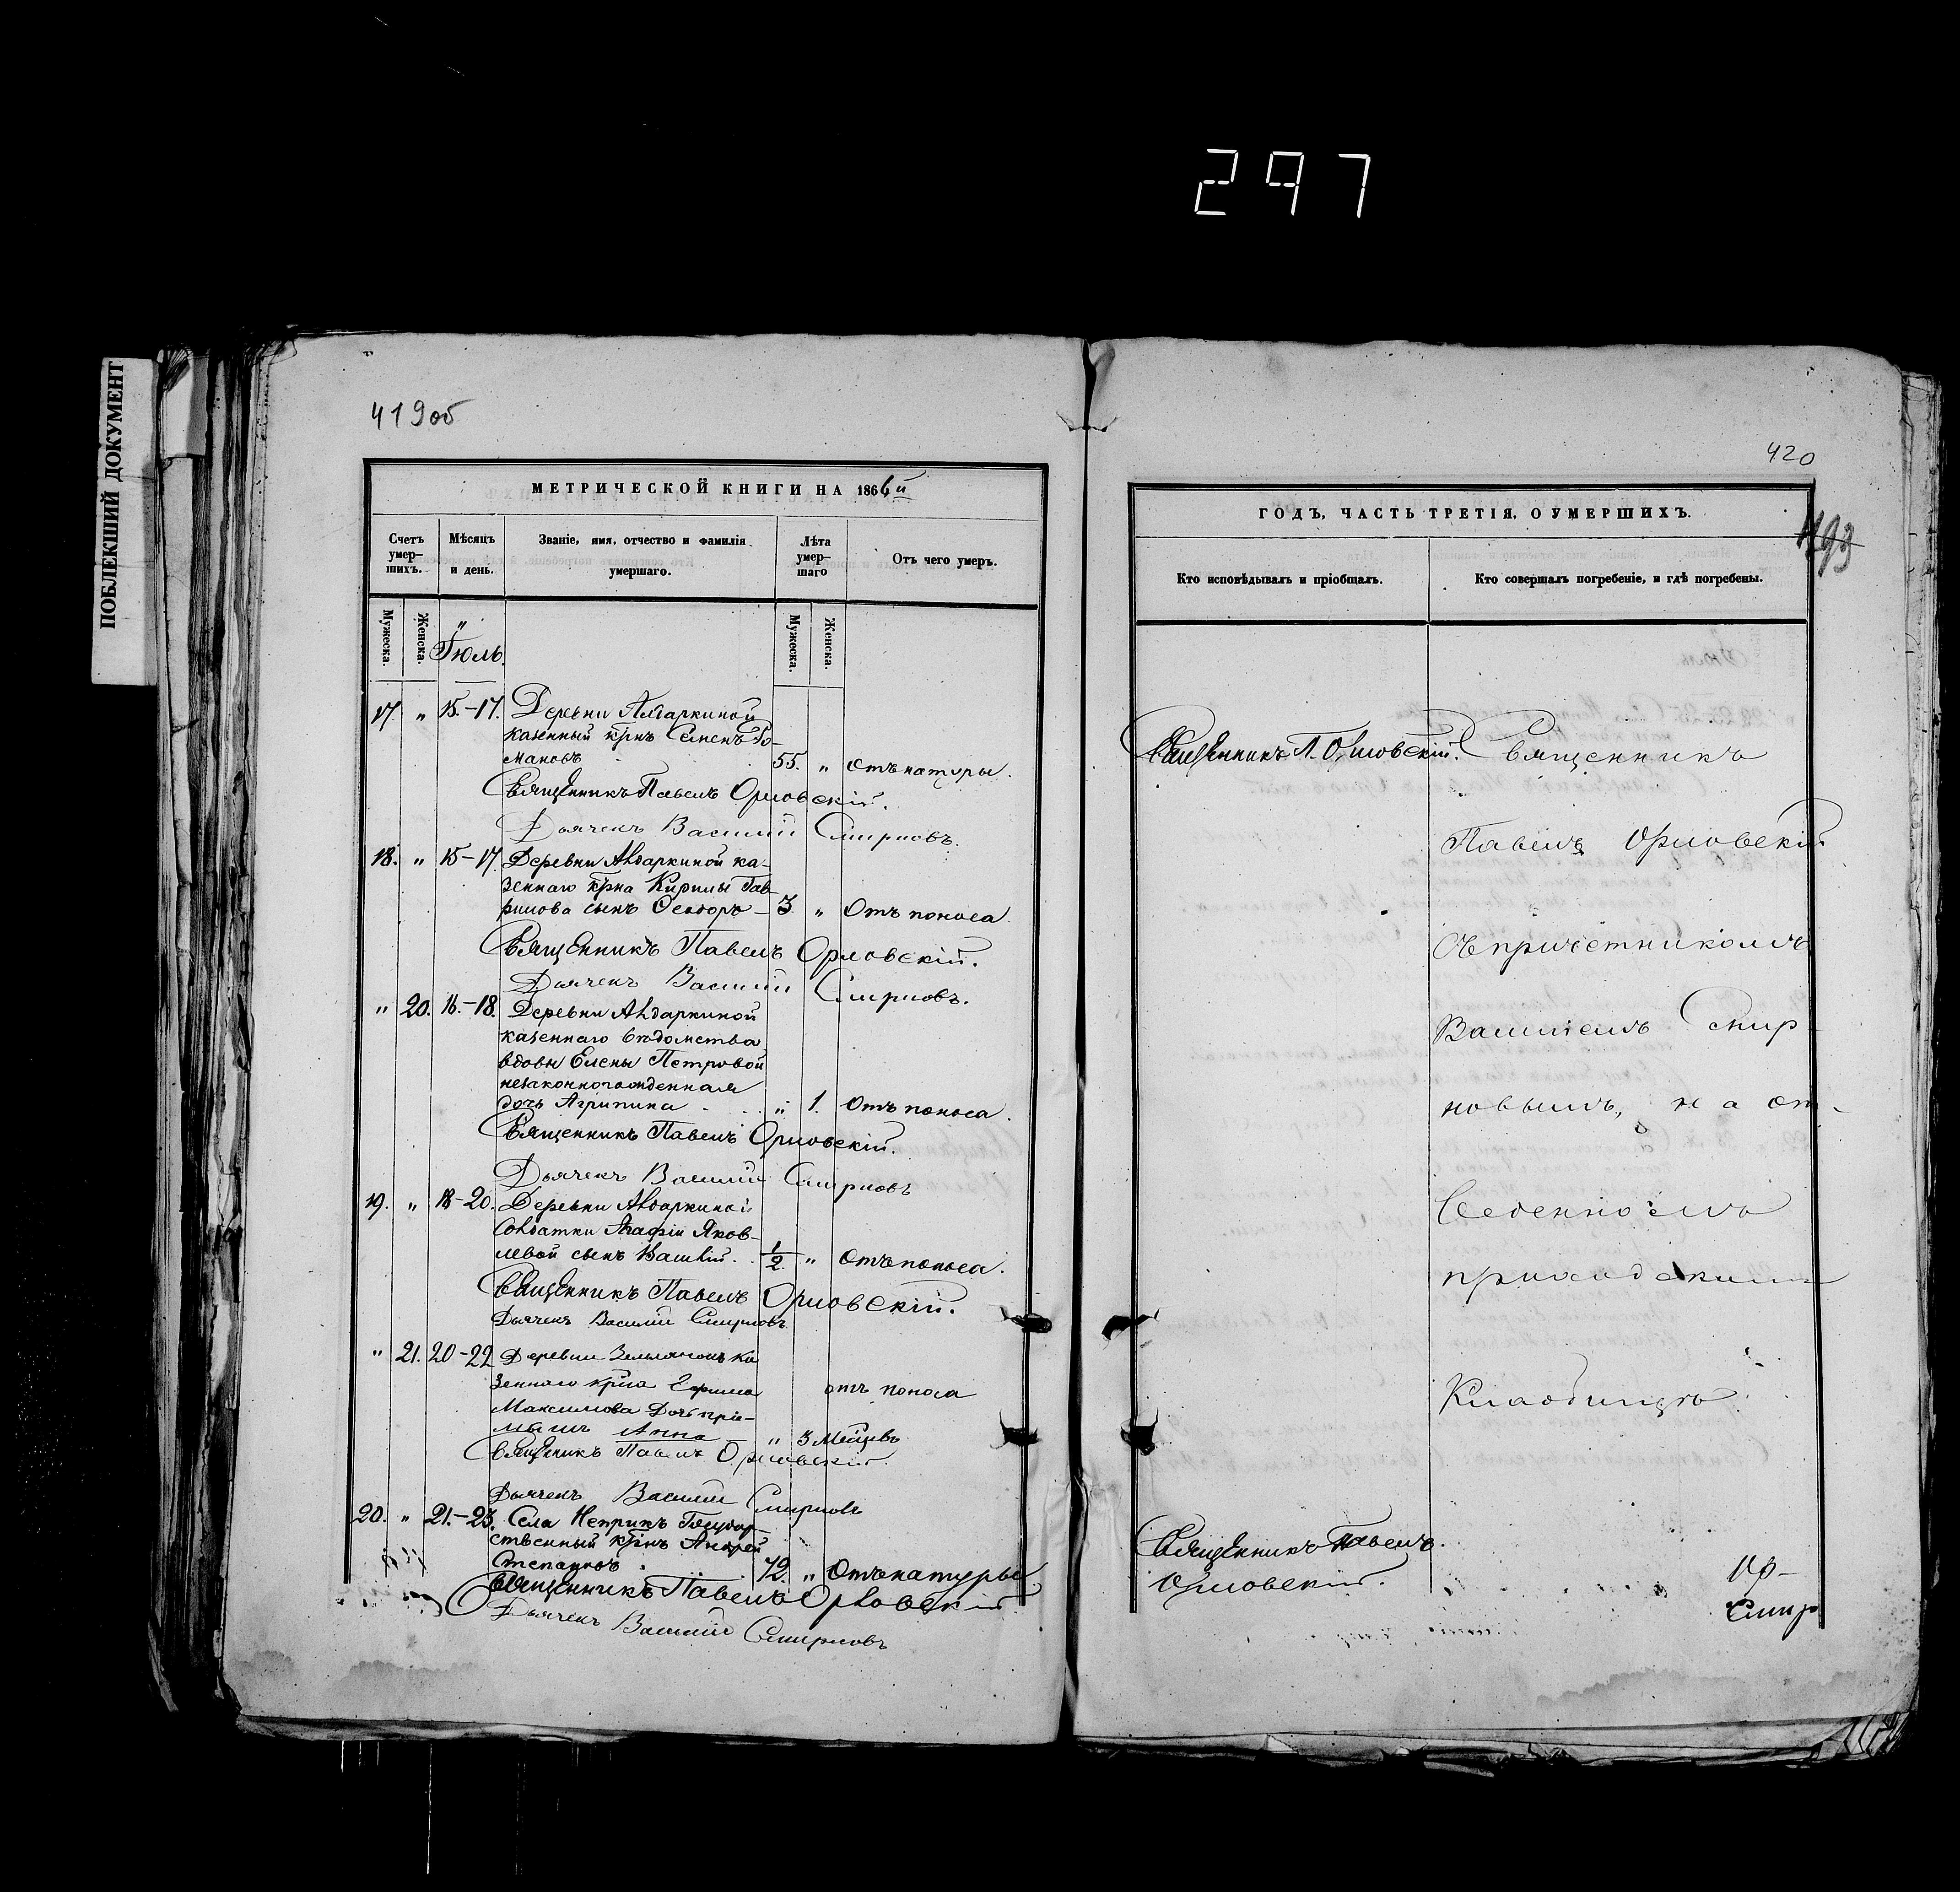 297
ПОБЛЕКШИЙ ДОКУМЕНТ
419об
МЕТРИЧЕСКОЙ КНИГИ НА 1866й
Счетъ умер-шихъ.
Мѣсяцъ и день.
Званіе, имя, отчество и фамилія умершаго.
Лѣта умер-шаго
Отъ чего умеръ.
Мужеска.
Женска.
Іюль.
Мужеска.
Женска.
17. " 15.-17. Деревни Авдаркиной
казенный крнъ Семенъ Ро-
мановъ 55. " отъ натуры.
Священникъ Павелъ Орловскій.
Дьячекъ Василій Смирновъ.
18. " 15-17. Деревни Авдаркиной ка-
зеннаго крна Кирилы Гав-
рилова сынъ Ѳеодоръ - 3 " Отъ поноса
Священникъ Павелъ Орловскій.
Дьячекъ Василій Смирновъ.
" 20. 16.-18. Деревни Авдаркиной
казеннаго вѣдомства
вдовы Елены Петровой
незаконнорожденная
дочь Агрипина " 1. Отъ поноса.
Священникъ Павелъ Орловскій.
Дьячекъ Василій Смирновъ
19. " 18-20. Деревни Авдаркиной
Солдатки Агафіи Яков-
левой сынъ Василій. 1/2 " Отъ поноса.
Священникъ Павелъ Орловскій.
Дьячекъ Василій Смирновъ
" 21. 20-22 Деревни ка
зеннаго крна Ефима отъ поноса
Максимова Дочь прі-
мышъ Анна " 3 Мѣсцвъ
Священникъ Павелъ Орловскій.
Дьячекъ Василій Смирновъ
20. " 21.-23. Села Неприкъ Государ-
ственный крнъ Андрей
Степановъ 72. " Отъ натуры
Священникъ Павелъ Орловскій
Дьячекъ Василій Смирновъ
420
493
ГОДЪ, ЧАСТЬ ТРЕТІЯ, О УМЕРШИХЪ.
Кто исповѣдывалъ и пріобщалъ.
Кто совершалъ погребеніе, и гдѣ погребены.
Священникъ П. Орловскій. Священникъ
Павелъ Орловскій
Съ причетникомъ
Василіемъ Смир-
новымъ, на от-
веденномъ
приходскимъ
Кладбищѣ.
Священникъ Павелъ
Орловскій.
Ор-
Смир